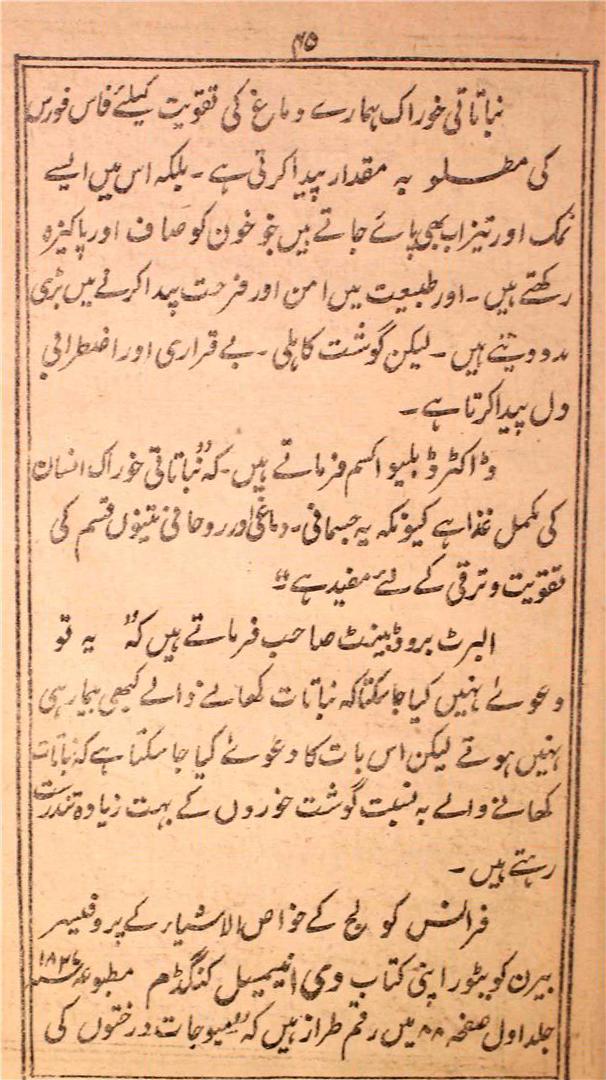 ۴۵
نباتاتی خوراک ہمارے دماغ کی تقویت کیلئے فاس فورس
کی مطلوبہ مقدار پیدا کرتی ہے۔ بلکہ اس میں ایسے
نمک اور تیزاب بھی پائے جاتے ہیں جو خون کو صاف اور پاکیزہ
رکھتے ہیں۔ اور طبیعت میں امن اور فرحت پیدا کرنے میں بڑی
مدد دیتے ہیں۔ لیکن گوشت کاہلی۔ بے قراری اور اضطرابی
دل پیدا کرتا ہے۔
ڈاکٹر ڈبلیو اکسم فرماتے ہیں۔ کہ "نباتاتی خوراک انسان
کی مکمل غذا ہے کیونکہ یہ جسمانی۔ دماغی اور روحانی تینوں قسم کی
تقویت و ترقی کے لئے مفید ہے"۔
البرٹ بروڈبینٹ صاحب فرماتے ہیں کہ " یہ تو
دعوےٰ نہیں کیا جا سکتا کہ نباتات کھانے والے کبھی بیمار ہی
نہیں ہوتے لیکن اس بات کا دعوےٰ کیا جا سکتا ہے کہ نباتات
کھانے والے بہ نسبت گوشت خوروں کے بہت زیادہ تندرست
رہتے ہیں۔
فرانس کولج کے خواص الاشیاء کے پروفیسر
بیرن کویٹور اپنی کتاب دی انیمیل کنگڈم مطبوعہ
جلد اول صفحہ ۸۸ میں رقم طراز ہیں کہ "میوجات درختوں کی